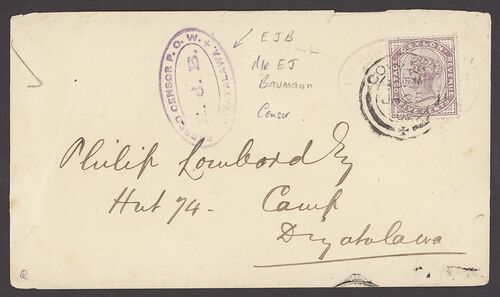 PASSED CENSOR P.O.W.
DIYATALAWA.
E. J. B.
E J B
Mr E J
Baumann
Censor
POSTAGE CEYLON REVENUE
FIVE CENTS
Philip Lombard Esq
Hut 74 - Camp
Diyatalawa